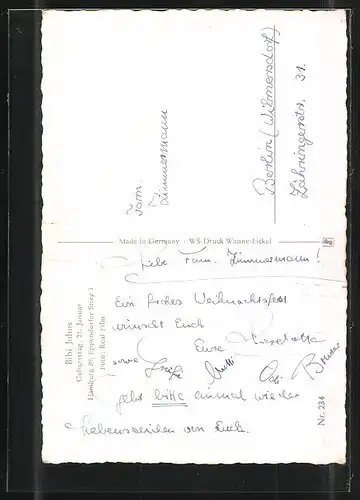 Fam.
Zimmermann
Berlin (Wilmersdorf)
Zähringerstr. 31.
Made in Germany · WS-Druck Wanne-Eickel
Bibi Johns
Geburtstag 21. Januar
Hamburg 20, Eppendorfer Stieg 1
Foto: Real Film
Liebe Fam. Zimmermann!
Ein frohes Weihnachtsfest
wünscht Euch
Eure
sowie Mutti
gebt bitte einmal wieder
Lebenszeichen von Euch.
Nr. 234